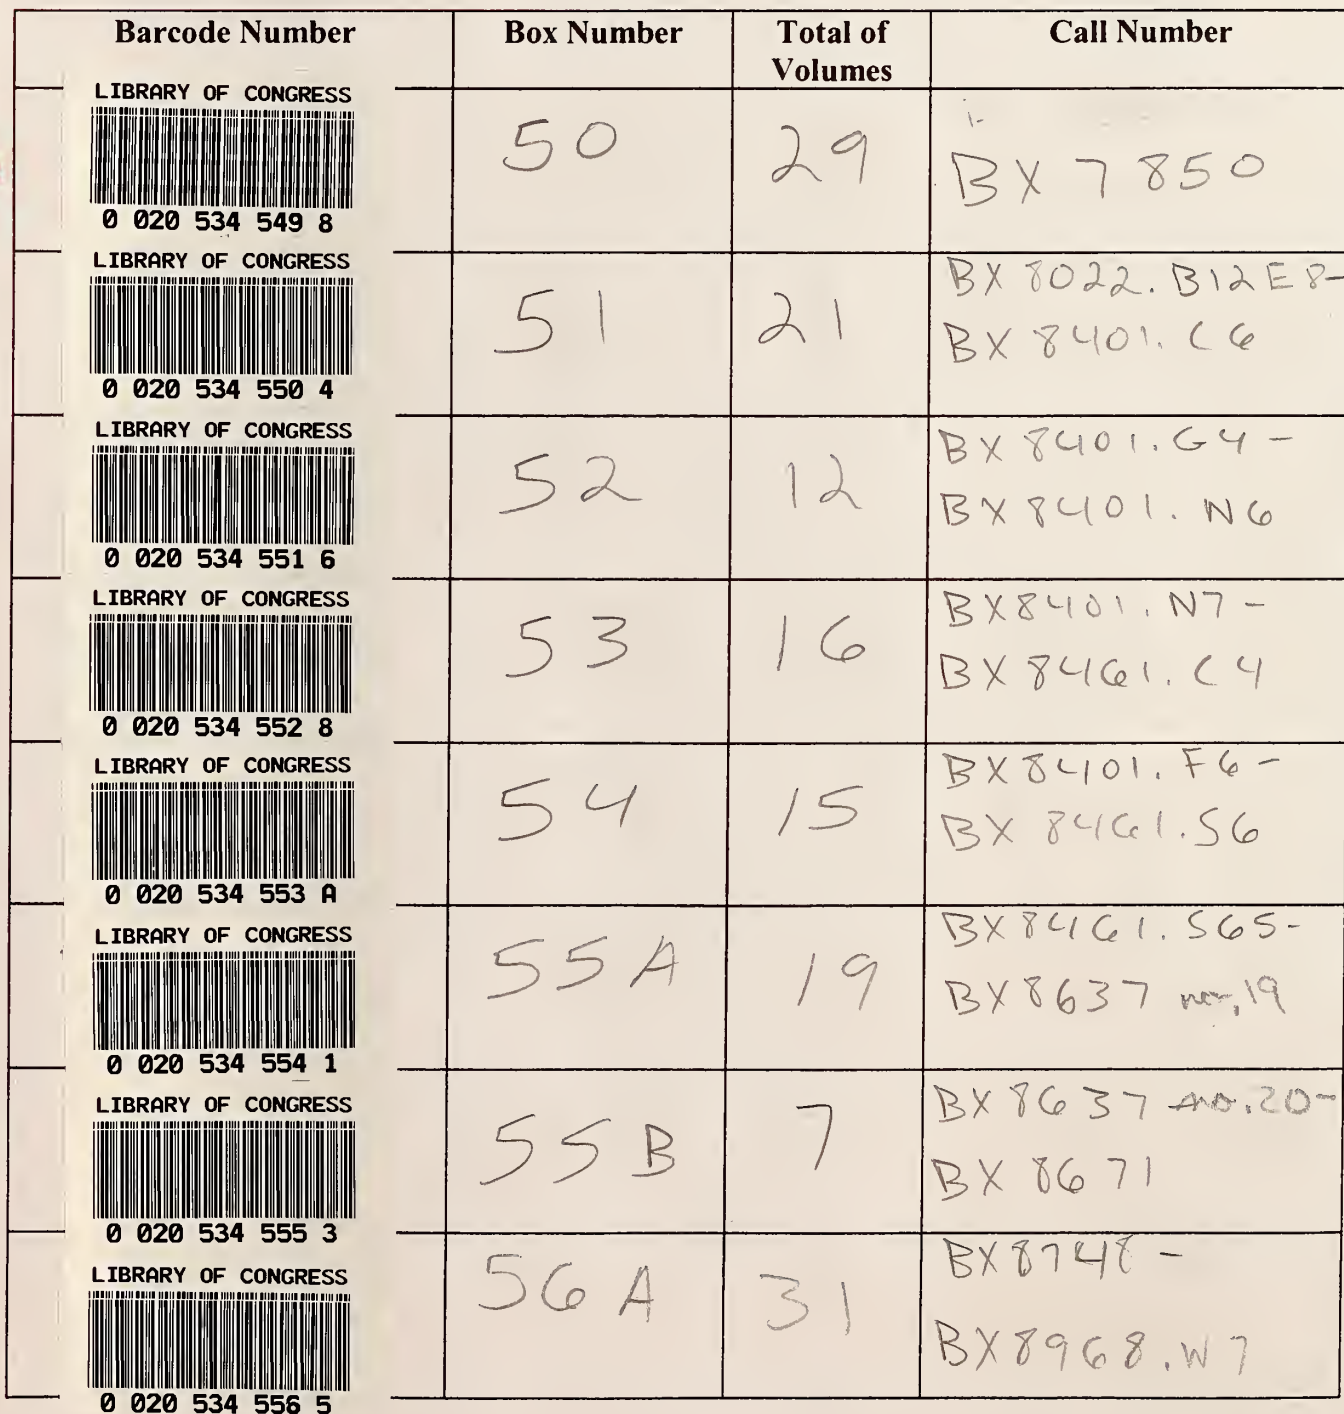 Barcode Number Box Number Total of Volumes Call Number
LIBRARY OF CONGRESS
0 020 534 549 8
50 29 BX 7850
LIBRARY OF CONGRESS
0 020 534 550 4
51 21 BX 8022. B12 E8-
BX 8401. C6
LIBRARY OF CONGRESS
0 020 534 551 6
52 12 BX 8401. G4 -
BX 8401. N6
LIBRARY OF CONGRESS
0 020 534 552 8
53 16 BX8401. N7 -
BX 8461. C4
LIBRARY OF CONGRESS
0 020 534 553 A
54 15 BX8401. F6 -
BX 8461. S6
LIBRARY OF CONGRESS
0 020 534 554 1
55A 19 BX8461. S65-
BX 8637 19
LIBRARY OF CONGRESS
0 020 534 555 3
55B 7 BX 8637 no. 20-
BX 8671
LIBRARY OF CONGRESS
0 020 534 556 5
56A 31 BX8748 -
BX8968. W7